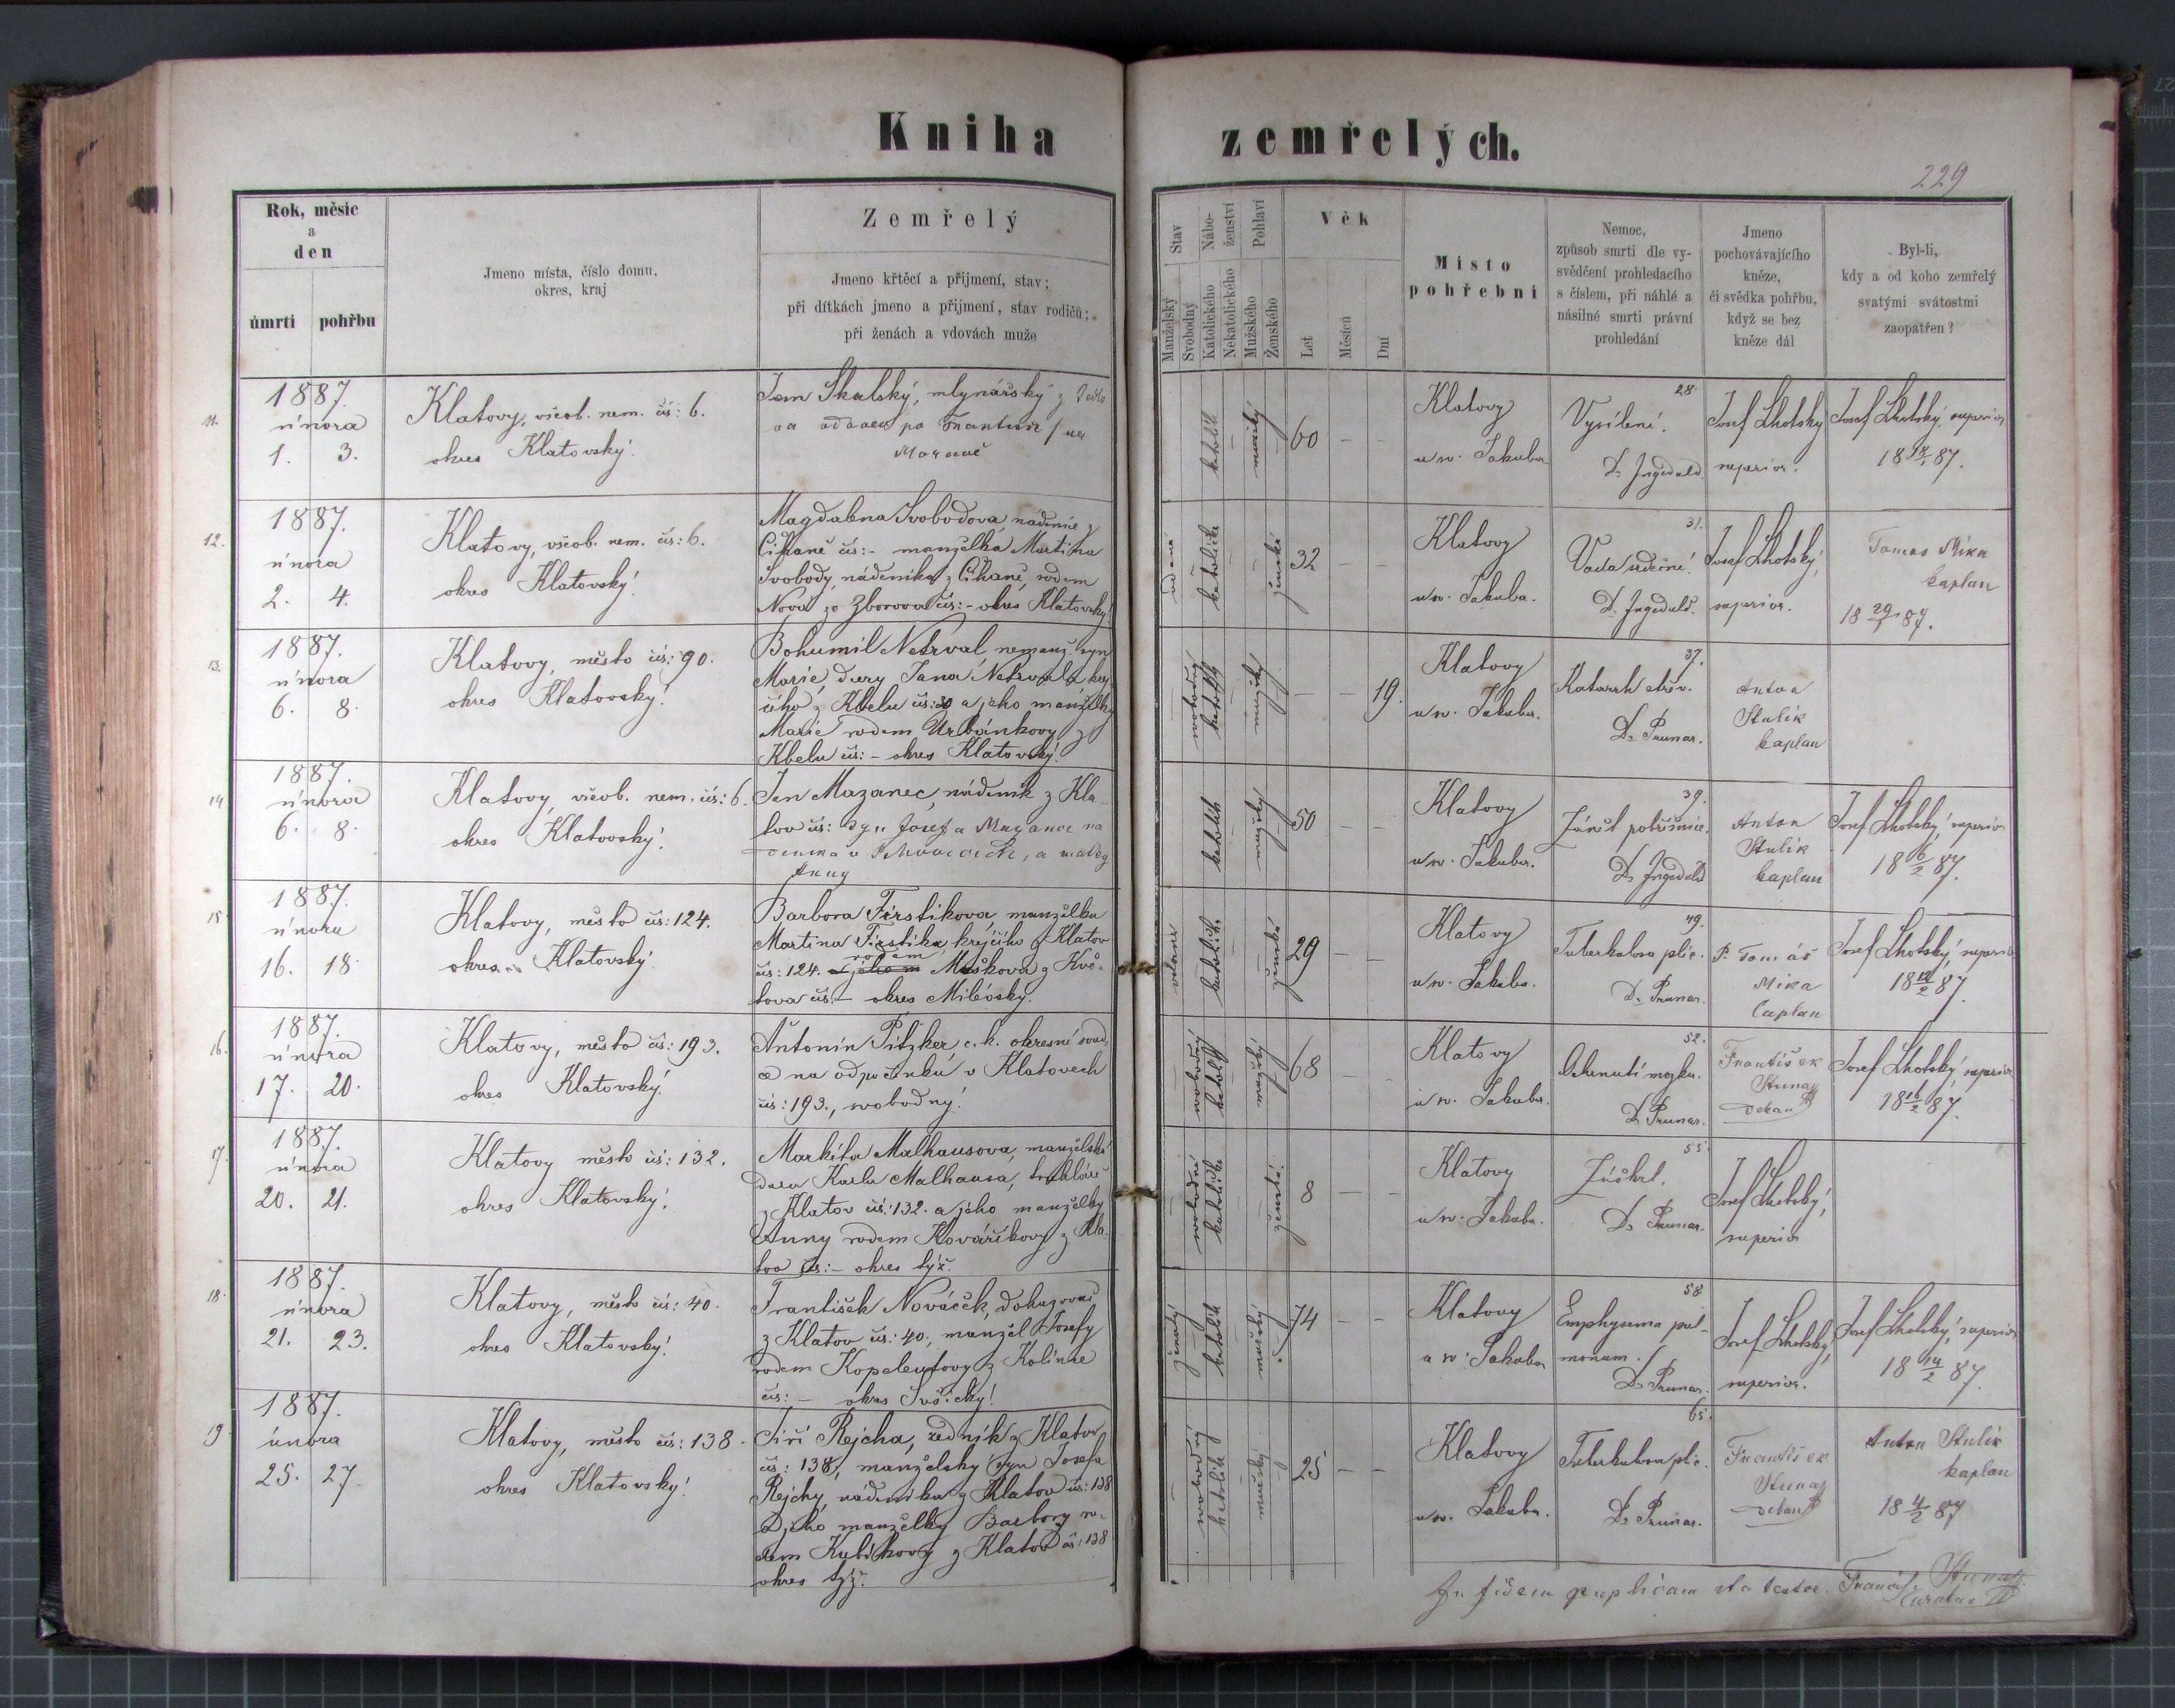 Kniha zemřelých.
229
Rok, měsíc
a
den
úmrtí pohřbu
Jmeno místa, číslo domu,
okres, kraj
Zemřelý
Jmeno křtěcí a přijmení, stav;
při dítkách jmeno a přijmení, stav rodičů;
při ženách a vdovách muže
Stav
Manželský
Svobodný
Nábo-
ženství
Katolického
Nekatolického
Pohlaví
Mužského
Ženského
Věk
Let
Měsíců
Dní
Místo
pohřební
Nemoc,
způsob smrti dle vy-
svědčení prohledacího
s číslem, při náhlé a
násilné smrti právní
prohledání
Jmeno
pochovávajícího
kněze,
či svědka pohřbu,
když se bez
kněze dál
Byl-li,
kdy a od koho zemřelý
svatými svátostmi
zaopatřen?
11.
1887.
února
1. 3.
Klatovy, všeob. nem. čís: 6.
okres Klatovský.
Jan Skalský, mlynářský z
katolík
mužský
60 – –
Klatovy
u sv. Jakuba
28.
Vysílení.
Dr
Josef Lhotský
superior.
Josef Lhotský, superior
18 87.
12.
1887.
února
2. 4.
Klatovy, všeob. nem. čís: 6.
okres Klatovský.
Magdalena Svobodová, nádenice z
Cihaně čís: – manželka Martina
Svobody, nádeníka z Cihaně, rodem
Nová ze Zborova čís: – okres Klatovský.
vdaná
katolička
ženská
32 – –
Klatovy
u sv. Jakuba.
31.
Vada srdeční.
Dr
Josef Lhotský,
superior.
Tomas Mika
kaplan
18 29/1 87.
13.
1887.
února
6. 8.
Klatovy, město čís: 90.
okres Klatovský.
Bohumil Netrval, nemanž. syn
Marie, dcery Jana Netrvala,
z Kbelu čís: 30 a jeho manželky
Marie rodem Urbánkovy z
Kbelu čís: – okres Klatovský.
svobodný
katolík
mužský
– – 19.
Klatovy
u sv. Jakuba.
37.
Katarrh střev.
Dr Prunar.
Anton
Stulik
kaplan
14
1887.
února
6. 8.
Klatovy, všeob. nem. čís: 6.
okres Klatovský.
Jan Mazanec, nádeník z Kla-
tov čís: syn Josefa Mazance na
a matky
Anny
katolík
mužský
50 – –
Klatovy
u sv. Jakuba.
39.
Zánět pobřišnice.
Dr
Anton
Stulik
kaplan
Josef Lhotský, superior
18 6/2 87.
15
1887.
února
16. 18
Klatovy, město čís: 124.
okres Klatovský.
Barbora Firstiková, manželka
Martina Firstika, krejčího z Klatov
rodem
čís: 124. Mašková z Kvě-
tova čís: – okres Milévský.
vdaná
katolička
ženská
29 – –
Klatovy
u sv. Jakuba.
49.
Tuberkulosa plic.
Dr Prunar.
P. Tomáš
Mika
Caplan
Josef Lhotský, superior
18 87.
16.
1887.
února
17. 20.
Klatovy, město čís: 193.
okres Klatovský.
Antonín Pitzker c. k. okresní soud-
ce na odpočinku v Klatovech
čís: 193., svobodný.
svobodný
katolík
mužský
68 – –
Klatovy
u sv. Jakuba.
52.
Ochrnutí mozku.
Dr Prunar.
František
děkan
Josef Lhotský superior
18 16/2 87.
17.
1887.
února
20. 21.
Klatovy město čís: 132.
okres Klatovský.
Markéta Malhausova, manželská
dcera Karla Malhausa, truhláře
z Klatov čís: 132. a jeho manželky
Anny rodem Kováříkovy z Kla-
tov čís: – okres týž.
svobodná
katolička
ženská.
8 – –
Klatovy
u sv. Jakuba.
55.
Záškrt.
Dr Prunar.
Josef Lhotský,
superior
18.
1887.
února
21. 23.
Klatovy, město čís: 40.
okres Klatovský.
František Nováček,
z Klatov čís: 40., manžel Josefy
rodem z Kolince
čís: – okres Sušický.
ženatý
katolík
mužský
74 – –
Klatovy
u sv. Jakuba
58
Emphysema pul-
monum.
Dr Prunar.
Josef Lhotský,
superior.
Josef Lhotský, superior
18 14/2 87.
19
1887.
února
25. 27.
Klatovy, město čís: 138.
okres Klatovský.
Jiří Rejcha, zedník z Klatov
čís: 138, manželský syn Josefa
Rejchy, nádeníka z Klatov čís: 138
a jeho manželky Barbory ro-
dem Kubíkovy z Klatov čís: 138
okres týž.
svobodný
katolík
mužský
25 – –
Klatovy
u sv. Jakuba.
65.
Tuberkulosa plic.
Dr Prunar.
František
děkan
Anton Stulik
kaplan
18 4/2 87
In fidem